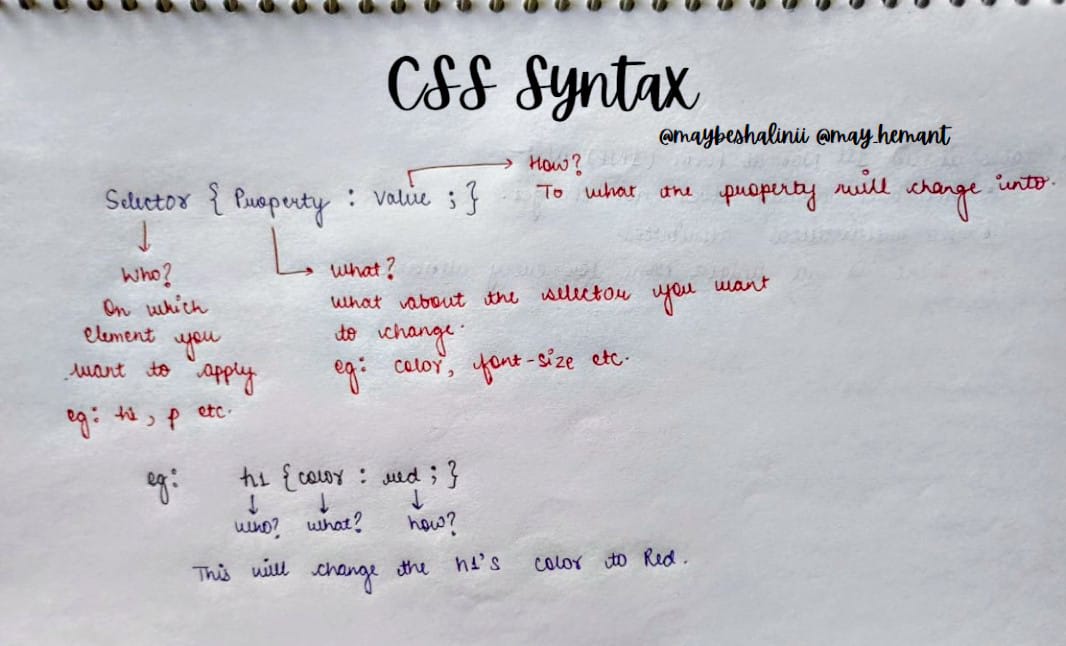 CSS Syntax
@maybeshalinii @may_hemant
How?
To what the property will change into.
Selector { Property : Value ; }
Who?
On which
element you
want to apply
eg: h1, p etc.
What?
What about the selector you want
to change.
eg: color, font-size etc.
eg: h1 { color : red ; }
who? what? how?
This will change the h1's color to Red.